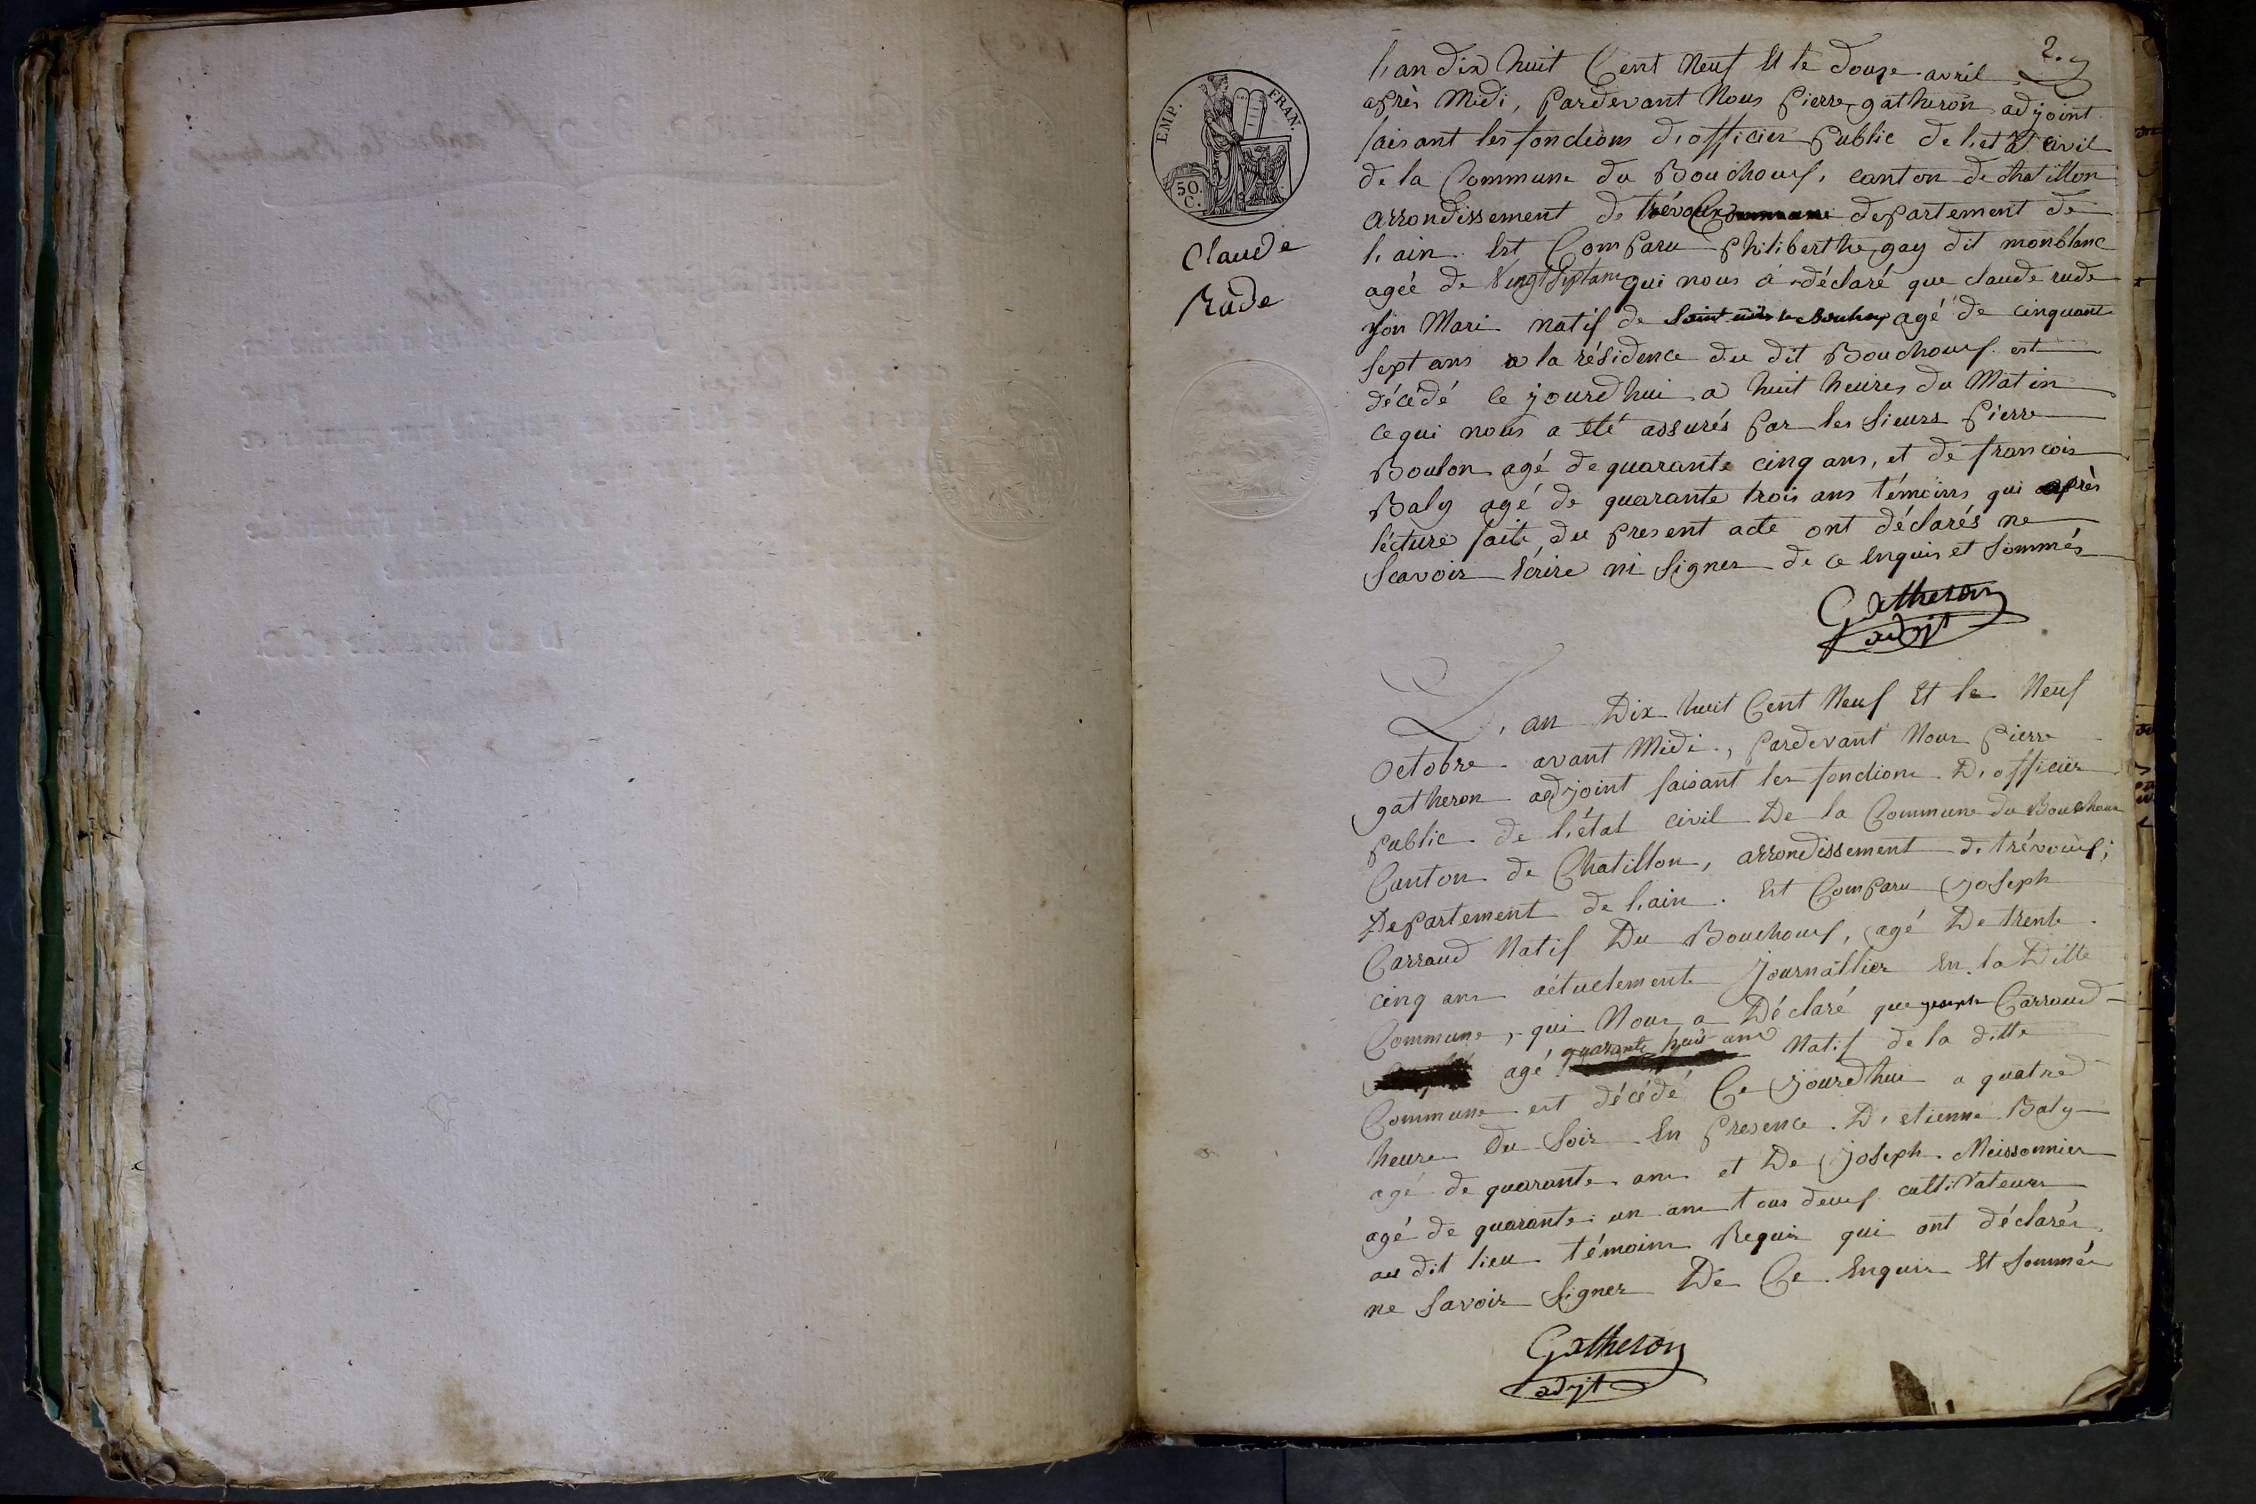 2.
EMP. FRAN.
50.
C.
Claude
Rude
L'an dix huit Cent Neuf Et le douze avril
après Midi, pardevant Nous pierre gatheron adjoint
faisant les fonctions d'officier public de l'etat civil
de la Commune du Bouchoux, canton de chatillon
arrondissement de trévoux departement de
l'ain. Est Comparu philiberthe gay dit monblanc
agéé de Vingt Septans qui nous a déclaré que claude rude
son Mari natif de agé de cinquante
sept ans a la résidence du dit Bouchoux est
décédé ce jourd'hui a huit heures du Matin
ce qui nous a été assurés par les sieurs pierre
Boulon agé de quarante cinq ans, et de francois
Baly agé de quarante trois ans témoins qui après
lécture faite du present acte ont déclarés ne
scavoir Ecrire ni signer de ce Enquis et sommés
Gatheron
adjt
L'an Dix huit Cent Neuf Et le Neuf
Octobre avant Midi, pardevant Nous pierre
gatheron adjoint faisant les fonctions D'officier
public de l'état civil De la Commune du Bouchoux
Canton de Chatillon, arrondissement de trévoux;
Departement de l'ain. Est Comparu joseph
Carraud Natif Du Bouchoux, agé De trente
cinq ans actuelement journallier En la Ditte
Commune, qui Nous a Déclaré que joseph Carraud
agé quarante huit ans Natif de la ditte
Commune est décédé Ce jourd'hui a quatre
heures du soir En presence D'etienne Baly
agé de quarante ans et De joseph Meissonnier
agé de quarante un ans tous deux cultivateurs
au dit lieu témoins Requis qui ont déclarés
ne savoir signer De Ce Enquis Et sommés
Gatheron
adjt